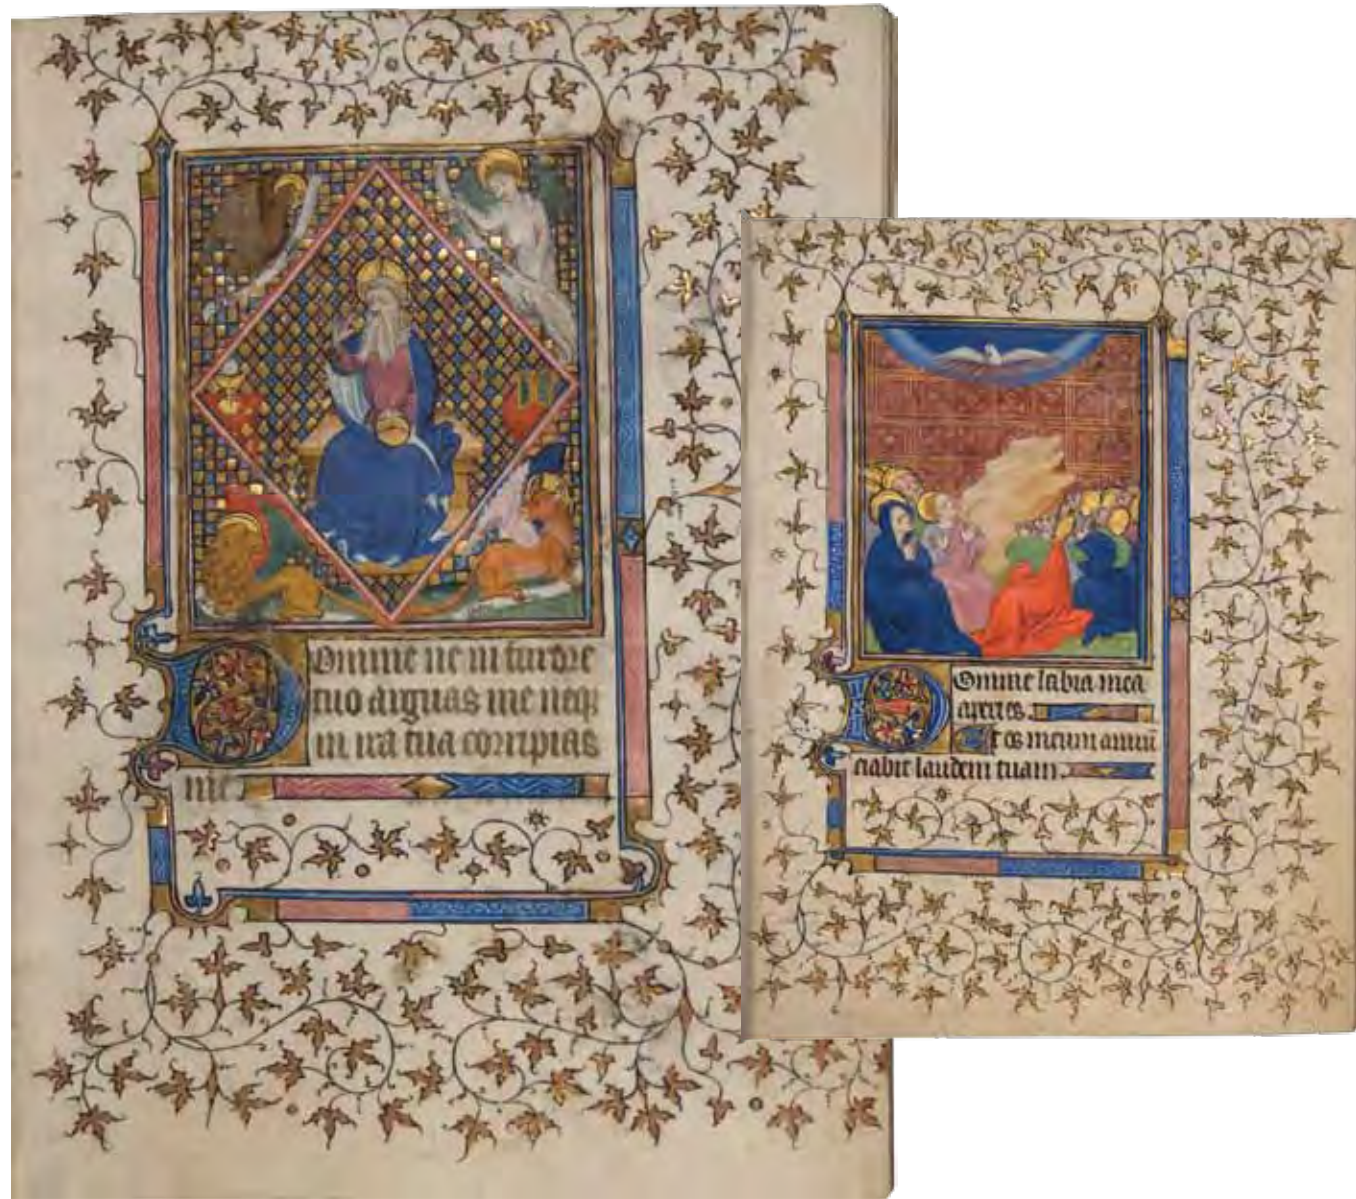 Domine ne in furore
tuo arguas me neq
in ira tua corripias
me
Domine labia mea
aperies.
Et os meum annū
ciabit laudem tuam.